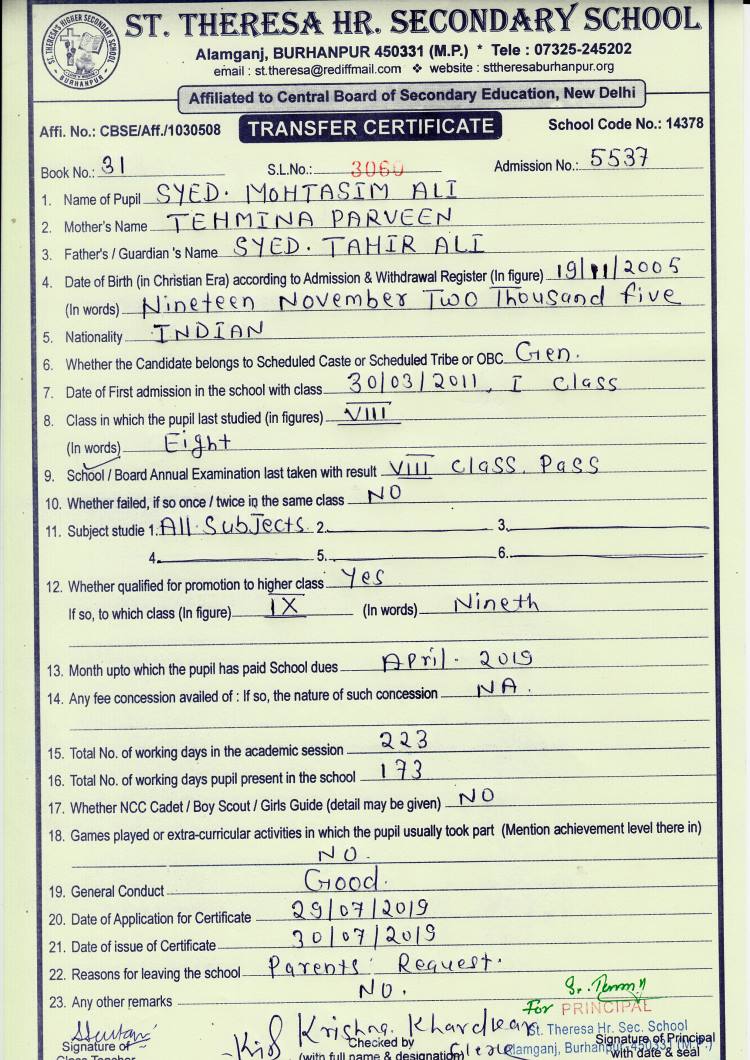 ST. THERESA HR. SECONDARY SCHOOL
Alamganj, BURHANPUR 450331 (M.P.) * Tele : 07325-245202
email : st.theresa@rediffmail.com ❖ website : sttheresaburhanpur.org
ST. THERESA'S HIGHER SECONDARY SCHOOL
BURHANPUR
Affiliated to Central Board of Secondary Education, New Delhi
Affi. No.: CBSE/Aff./1030508 TRANSFER CERTIFICATE School Code No.: 14378
Book No.: 31 S.L.No.: 3060 Admission No.: 5537
1. Name of Pupil SYED. MOHTASIM ALI
2. Mother's Name TEHMINA PARVEEN
3. Father's / Guardian 's Name SYED. TAHIR ALI
4. Date of Birth (in Christian Era) according to Admission & Withdrawal Register (In figure) 19/11/2005
(In words) Nineteen November Two Thousand five
5. Nationality INDIAN
6. Whether the Candidate belongs to Scheduled Caste or Scheduled Tribe or OBC Gen.
7. Date of First admission in the school with class 30/03/2011, I class
8. Class in which the pupil last studied (in figures) VIII
(In words) Eight
9. School / Board Annual Examination last taken with result VIII class. Pass
10. Whether failed, if so once / twice in the same class NO
11. Subject studie 1. All Subjects 2. 3.
4. 5. 6.
12. Whether qualified for promotion to higher class Yes
If so, to which class (In figure) IX (In words) Nineth
13. Month upto which the pupil has paid School dues April. 2019
14. Any fee concession availed of : If so, the nature of such concession NA.
15. Total No. of working days in the academic session 223
16. Total No. of working days pupil present in the school 173
17. Whether NCC Cadet / Boy Scout / Girls Guide (detail may be given) NO
18. Games played or extra-curricular activities in which the pupil usually took part (Mention achievement level there in)
NO.
19. General Conduct Good.
20. Date of Application for Certificate 29/07/2019
21. Date of issue of Certificate 30/07/2019
22. Reasons for leaving the school Parents' Request.
23. Any other remarks NO.
For PRINCIPAL
Krishna Khardekar
St. Theresa Hr. Sec. School
Signature of Checked by Alamganj, Burhanpur 450331 (M.P.) Signature of Principal
Class Teacher (with full name & designation) with date & seal